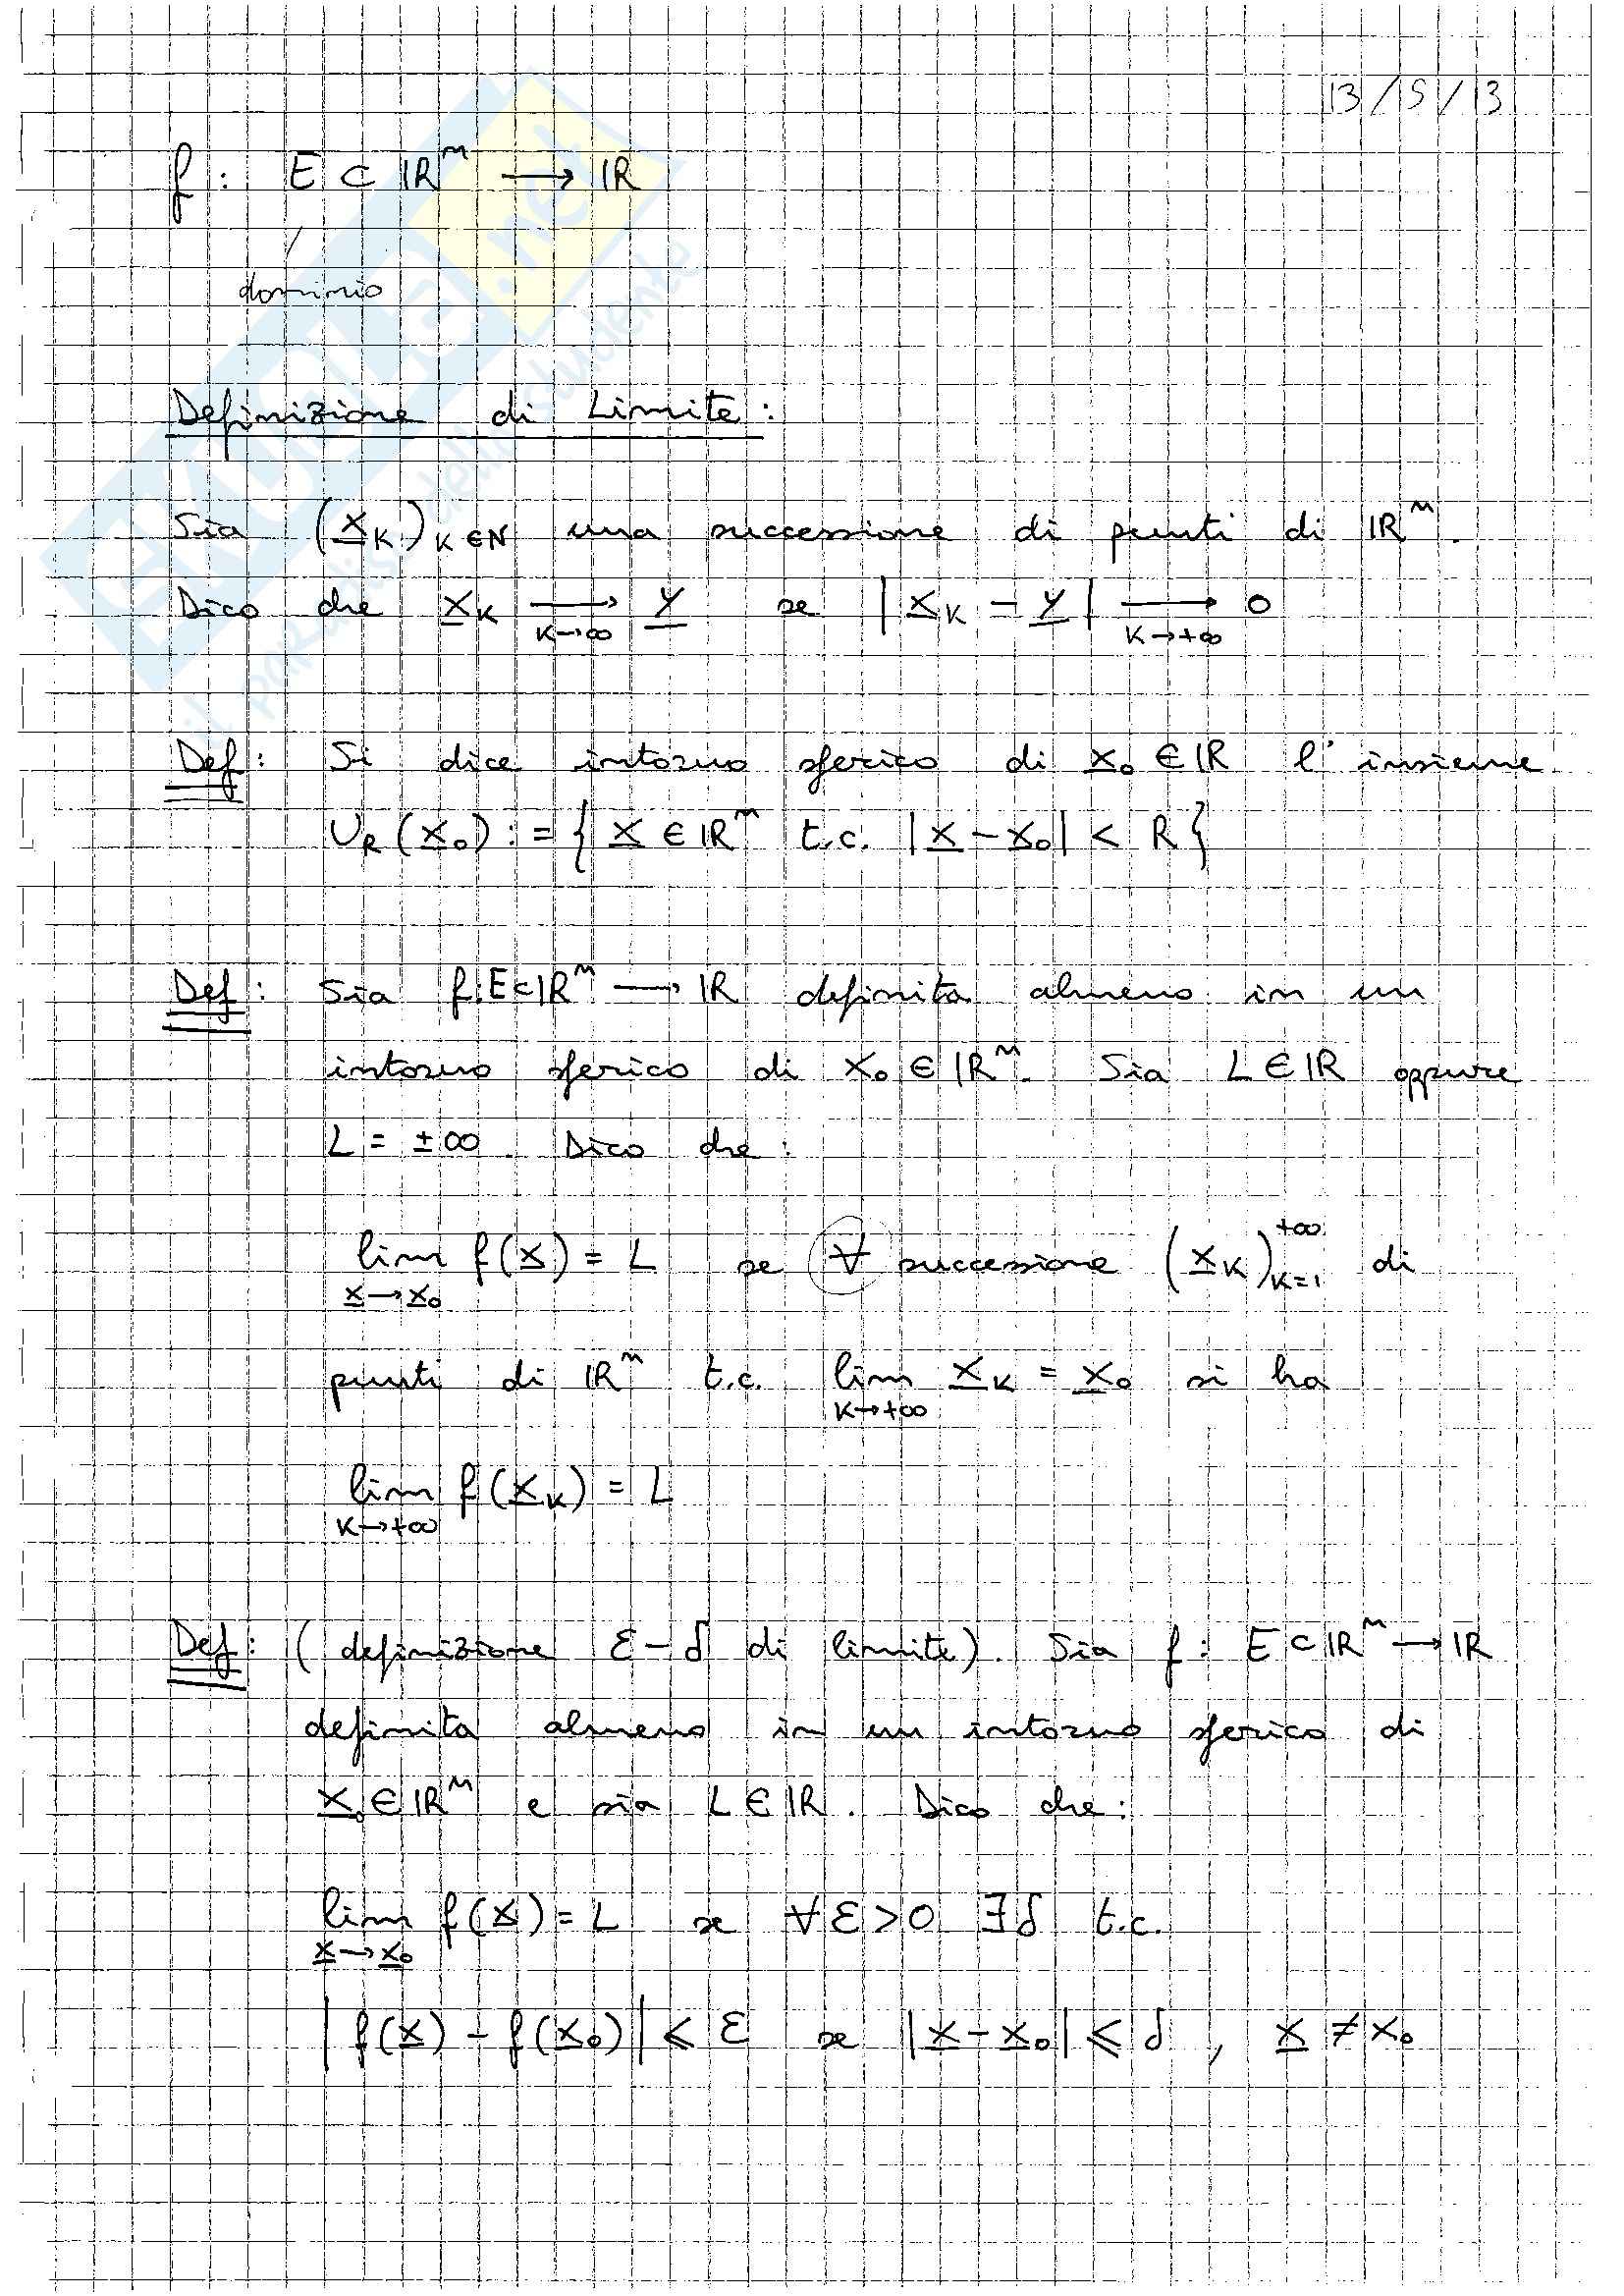 13/5/13
f: E ⊂ ℝⁿ → ℝ
dominio
Definizione di Limite:
Sia (x_K)_{K∈N} una successione di punti di ℝⁿ.
Dico che x_K → y se |x_K − y| → 0
K→∞ K→+∞
Def: Si dice intorno sferico di x₀ ∈ ℝ l'insieme
U_R(x₀) := { x ∈ ℝⁿ t.c. |x − x₀| < R }
Def: Sia f: E ⊂ ℝⁿ → ℝ definita almeno in un
intorno sferico di x₀ ∈ ℝⁿ. Sia L ∈ ℝ oppure
L = ±∞. Dico che:
lim f(x) = L se ∀ successione (x_K)_{K=1}^{+∞} di
x→x₀
punti di ℝⁿ t.c. lim x_K = x₀ si ha
K→+∞
lim f(x_K) = L
K→+∞
Def: (definizione ε − δ di limite). Sia f: E ⊂ ℝⁿ → ℝ
definita almeno in un intorno sferico di
x₀ ∈ ℝⁿ e sia L ∈ ℝ. Dico che:
lim f(x) = L se ∀ε > 0 ∃δ t.c.
x→x₀
|f(x) − f(x₀)| ⩽ ε se |x − x₀| ⩽ δ , x ≠ x₀